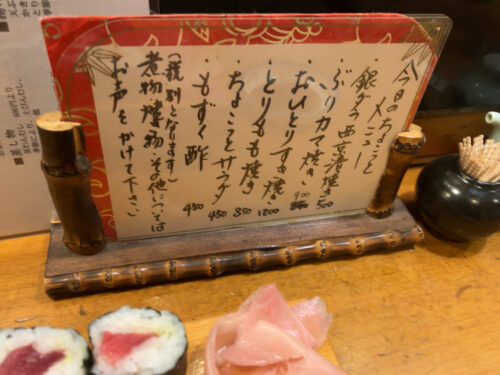 今日のちょこっと
メニュー
・銀ダラ西京漬焼き
・ぶりカマ焼き 500
・おひとりすき焼き
・とりもも焼き 1200
・ちょこっとサラダ 350
・もずく酢 450
(税別となります) 450
煮物・焼物・その他については
お声をかけて下さい